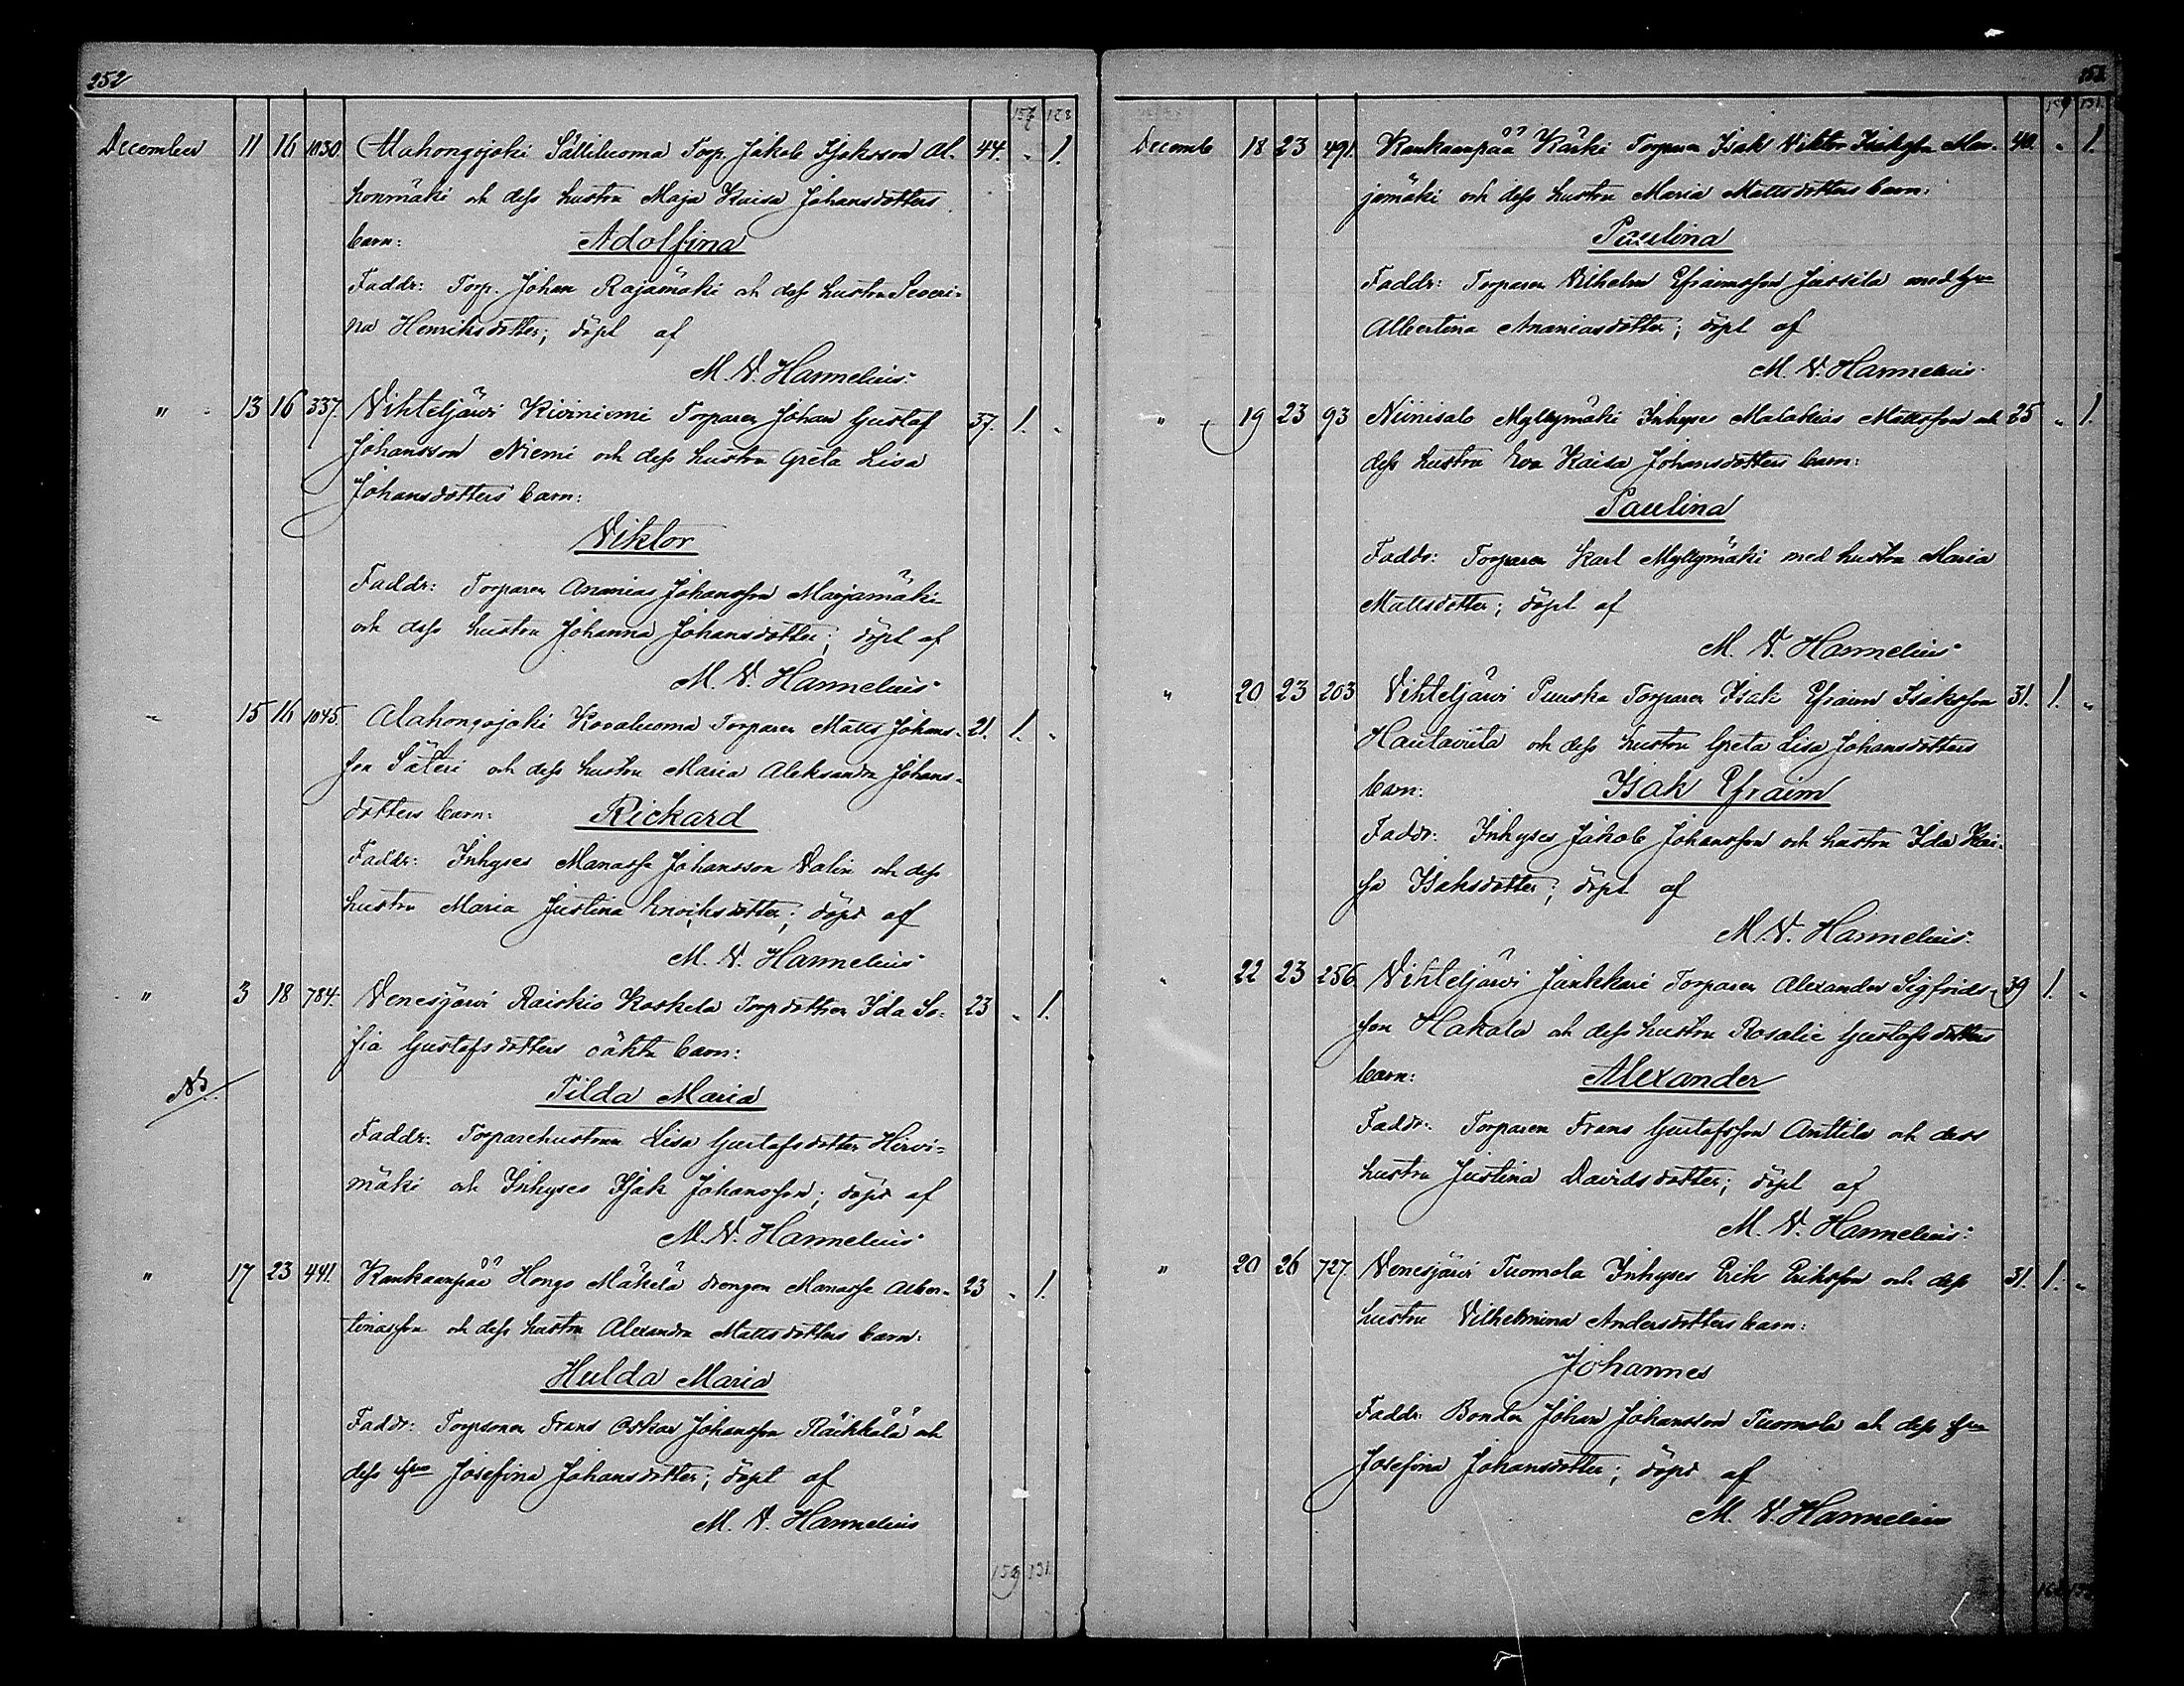 252
157 128
December 11 16 1030. Alahongojoki Sälliluoma Torp. Jakob Isaksson Al- 44. " 1.
honmäki och dess hustru Maja Kaisa Johansdotters
barn: Adolfina
Faddr: Torp. Johan Rajamäki och dess hustru Severi-
na Henriksdotter; döpt af
M. V. Hannelius.
" 13 16 337. Vihteljärvi Kiviniemi Torparen Johan Gustaf 37. 1. "
Johansson Niemi och dess hustru Greta Lisa
Johansdotters barn:
Viktor
Faddr: Torparen Ananias Johansson Marjamäki
och dess hustru Johanna Johansdotter; döpt af
M. V. Hannelius.
" 15 16 1045. Alahongojoki Kovaluoma Torparen Matts Johans- 21. 1. "
son Säteri och dess hustru Maria Aleksandra Johans-
dotters barn: Rickard
Faddr: Inhyses Manasse Johansson Valin och dess
hustru Maria Justina Enoiksdotter; döpt af
M. V. Hannelius.
" 3 18 784. Venesjärvi Raiskio Koskela Torpdottren Ida So- 23 " 1.
fia Gustafsdotters oäkta barn:
Nb.
Tilda Maria
Faddr: Torparehustrun Lisa Gustafsdotter Hirvi-
mäki och Inhyses Isak Johansson; döpt af
M. V. Hannelius.
" 17 23 441. Kankaanpää Hongo Mäkelä drengen Manasse Alber- 23 " 1.
tinasson och dess hustru Alexandra Mattsdotters barn:
Hulda Maria
Faddr: Torpsonen Frans Oskar Johansson Räikkälä och
dess hru Josefina Johansdotter; döpt af
M. V. Hannelius
159 131.
253.
159 131.
Decemb 18 23 491. Kankaanpää Kärki Torparen Isak Viktor Isaksson Mar- 40. " 1.
jamäki och dess hustru Maria Mattsdotters barn:
Paulina
Faddr: Torparen Vilhelm Efraimsson Jussila med hru
Albertina Ananiasdotter; döpt af
M. V. Hannelius.
" 19 23 93 Niinisalo Myllymäki Inhyses Malakias Mattsson och 25 " 1.
dess hustru Eva Kaisa Johansdotters barn:
Paulina
Faddr: Torparen Karl Myllymäki med hustru Maria
Mattsdotter; döpt af
M. V. Hannelius.
" 20 23 203 Vihteljärvi Puuska Torparen Isak Efraim Isaksson 31. 1. "
Hautaviita och dess hustru Greta Lisa Johansdotters
barn: Isak Efraim
Faddr: Inhyses Jakob Johansson och hustru Ida Kai-
sa Isaksdotter; döpt af
M. V. Hannelius.
" 22 23 256. Vihteljärvi Jankkari Torparen Alexander Sigfrids- 39 1. "
son Hakala och dess hustru Rosalie Gustafsdotters
barn: Alexander
Faddr: Torparen Frans Gustafsson Anttila och dess
hustru Justina Davidsdotter; döpt af
M. V. Hannelius.
" 20 26 727. Venesjärvi Tuomola Inhyses Erik Eriksson och dess 31. 1. "
hustru Vilhelmina Andersdotters barn:
Johannes
Faddr: Bonden Johan Johansson Tuomola och dess hru
Josefina Johansdotter; döpt af
M. V. Hannelius